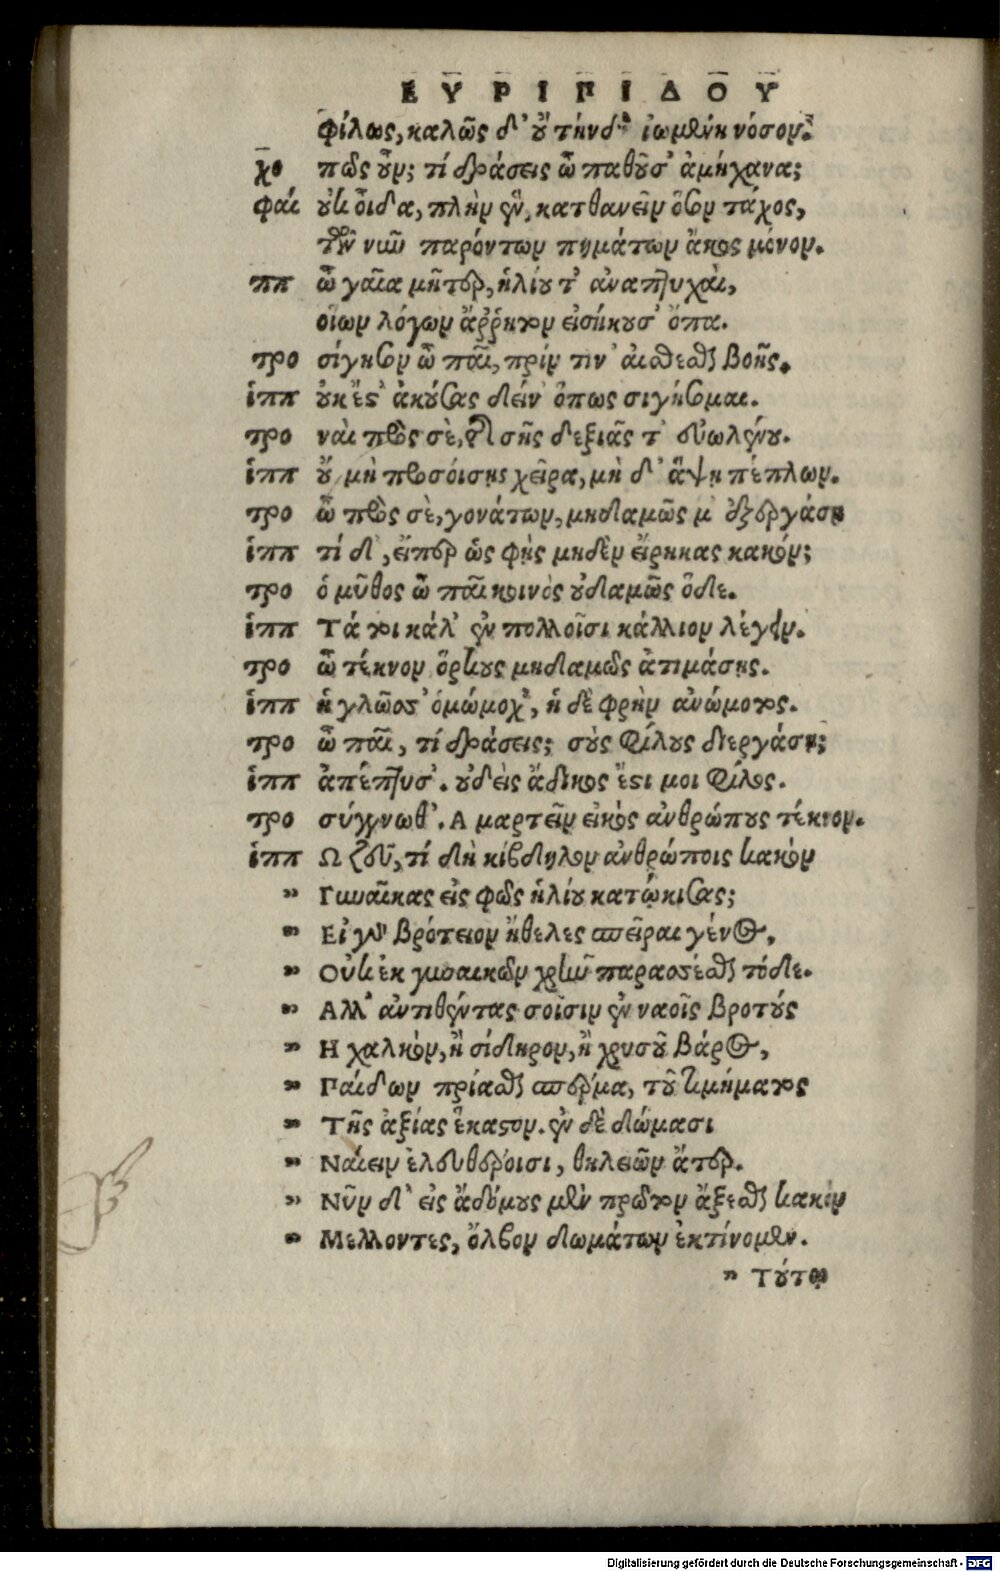 ΕΥΡΙΠΙΔΟΥ
φίλως, καλῶς δ' ὐ τήνδ' ἰωμένη νόσον.
χο πῶς οὖν; τί δράσεις ὦ παθοῦσ' ἀμήχανα;
φαι οὐκ οἶδα, πλὴν ἓν, κατθανεῖν ὅσον τάχος,
τῶν νῦν παρόντων πημάτων ἄκος μόνον.
ιππ ὦ γαῖα μῆτερ, ἡλίου τ' ἀναπτυχαὶ,
οἵων λόγων ἄῤῥητον εἰσήκουσ' ὄπα.
τρο σίγησον ὦ παῖ, πρίν τιν' αἰσθέσθαι βοῆς.
ἱππ οὐκ ἔστ' ἀκούσας δείν' ὅπως σιγήσομαι.
τρο ναὶ πρὸς σὲ, τῆς σῆς δεξιᾶς τ' εὐωλένου.
ἱππ οὐ μὴ προσοίσῃς χεῖρα, μὴ δ' ἅψῃ πέπλων.
τρο ὦ πρὸς σὲ, γονάτων, μηδαμῶς μ' ἐξεργάσῃ
ἱππ τί δ', εἴπερ ὡς φῂς μηδὲν εἴρηκας κακόν;
τρο ὁ μῦθος ὦ παῖ κοινὸς οὐδαμῶς ὅδε.
ἱππ Τά τοι κάλ' ἐν πολλοῖσι κάλλιον λέγειν.
τρο ὦ τέκνον ὅρκους μηδαμῶς ἀτιμάσῃς.
ἱππ ἡ γλῶσσ' ὀμώμοχ', ἡ δὲ φρὴν ἀνώμοτος.
τρο ὦ παῖ, τί δράσεις; σοὺς φίλους διεργάσῃ;
ἱππ ἀπέπτυσ'. οὐδεὶς ἄδικος ἔστι μοι φίλος.
τρο σύγγνωθ'. Αμαρτεῖν εἰκὸς ἀνθρώπους τέκνον.
ἱππ Ω ζεῦ, τί δὴ κίβδηλον ἀνθρώποις κακὸν
» Γυναῖκας εἰς φῶς ἡλίου κατῴκισας;
» Εἰ γὰρ βρότειον ἤθελες σπεῖραι γένος,
» Οὐκ ἐκ γυναικῶν χρῆν παρασχέσθαι τόδε.
» Αλλ' ἀντιθέντας σοῖσιν ἐν ναοῖς βροτούς
» Η χαλκὸν, ἢ σίδηρον, ἢ χρυσοῦ βάρος,
» Παίδων πρίασθαι σπέρμα, τοῦ τιμήματος
» Τῆς ἀξίας ἕκαστον. ἐν δὲ δώμασι
» Ναίειν ἐλευθέροισι, θηλειῶν ἄτερ.
» Νῦν δ' εἰς ἀδόμους μὲν πρῶτον ἄξεσθαι κακὸν
» Μελλοντες, ὄλβον δωμάτων ἐκτίνομεν.
» Τούτῳ
Digitalisierung gefördert durch die Deutsche Forschungsgemeinschaft - DFG